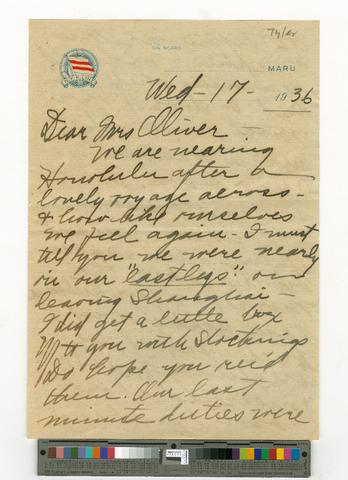 Tyler
ON BOARD
MARU
Wed - 17 - 1936
Dear Mrs Oliver
We are nearing
Honolulu after a
lovely voyage across -
& how like ourselves
we feel again - I must
tell you we were nearly
on our "last legs" on
leaving Shanghai -
I did get a little box
off to you with stockings
Do hope you rec'd
them. Our last
minute duties were